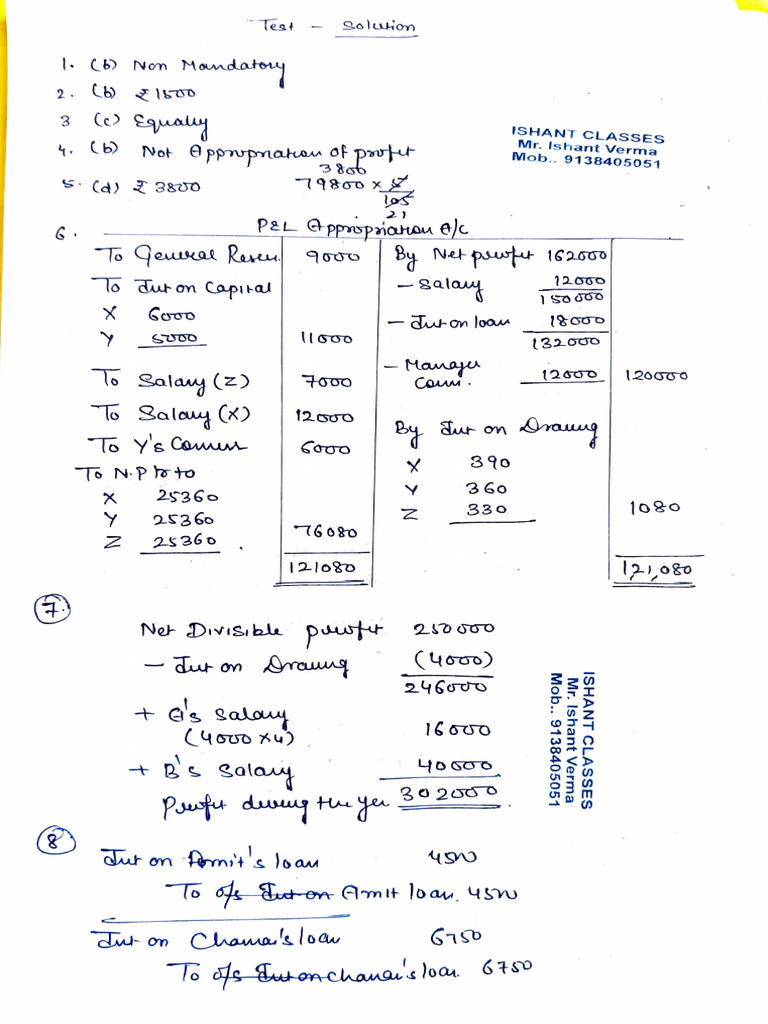 Test - Solution
1. (b) Non Mandatory
2. (b) ₹1500
3 (c) Equally
4. (b) Not Appropriation of profit
5. (d) ₹3800
3800
79800 × 5
105
21
ISHANT CLASSES
Mr. Ishant Verma
Mob.. 9138405051
6.
P&L Appropriation A/c
To General Reser. 9000 By Net profit 162000
To Int on Capital - Salary 12000
150000
X 6000 - Int on loan 18000
Y 5000 11000 132000
To Salary (Z) 7000 - Manager Comm. 12000 120000
To Salary (X) 12000
To Y's Comm 6000 By Int on Drawing
To N.P to X 390
X 25360 Y 360
Y 25360 76080 Z 330 1080
Z 25360.
121080 121,080
7.
Net Divisible profit 250000
- Int on Drawing (4000)
246000
+ G's Salary
(4000 × 4) 16000
+ B's Salary 40000
Profit during the yer 302000.
ISHANT CLASSES
Mr. Ishant Verma
Mob.. 9138405051
8
Int on Amit's loan 4500
To o/s Int on Amit loan. 4500
Int on loan 6750
To o/s Int on loan. 6750